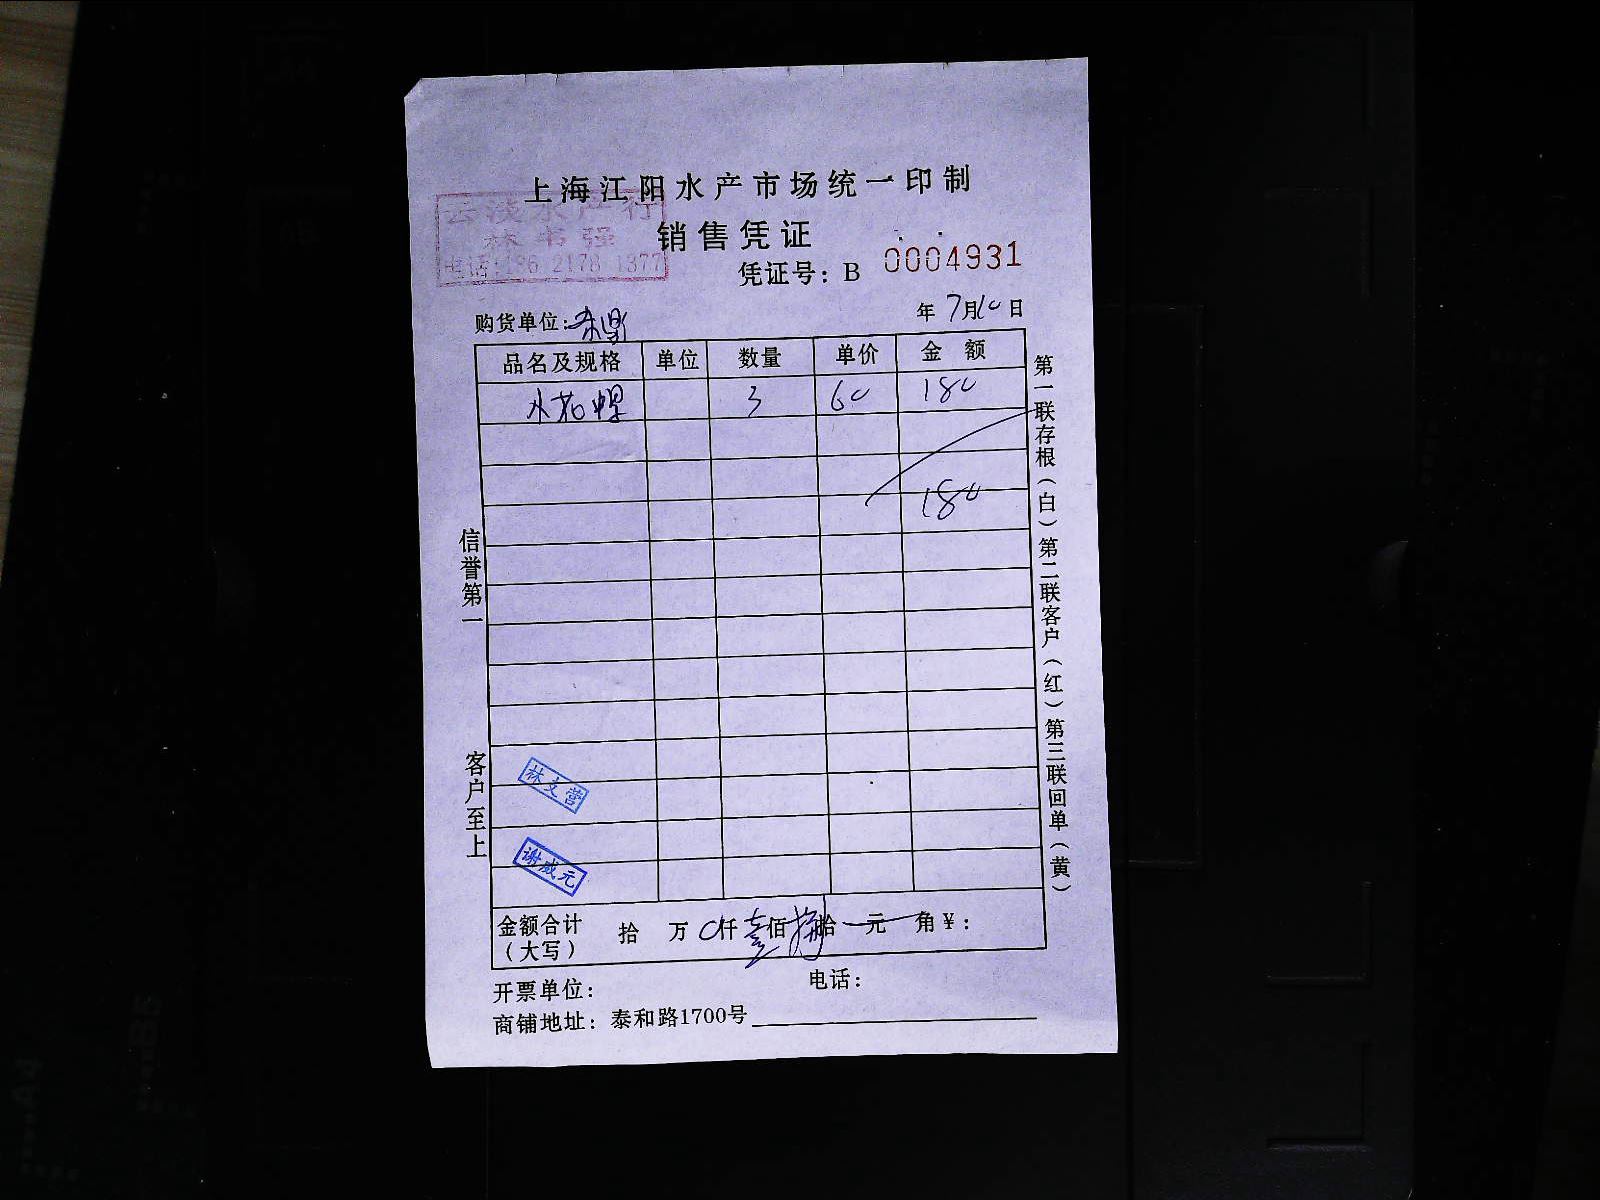 上海江阳水产市场统一印制
水产行
销售凭证
电话:186 2178 1377
凭证号：B 0004931
购货单位：
年 7月10日
品名及规格 单位 数量 单价 金 额
水 3 60 180
180
信誉第一
客户至上
第一联存根（白）第二联客户（红）第三联回单（黄）
林文营
谢咸元
金额合计（大写） 拾 万 0仟壹佰捌拾 元 角￥：
开票单位：
电话：
商铺地址：泰和路1700号